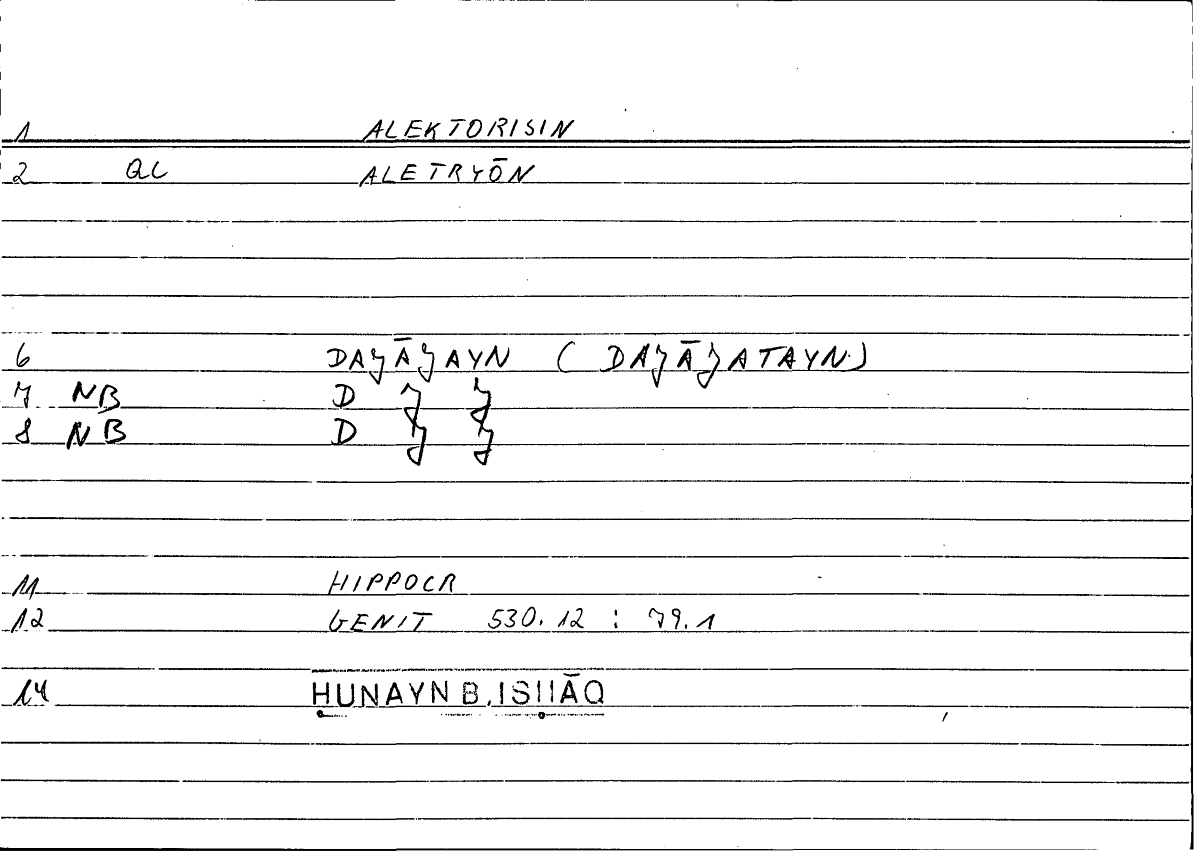 1 ALEKTORISIN
2 QL ALETRYŌN
6 DAJĀJAYN (DAJĀJATAYN)
7 NB D J J
8 NB D J J
11 HIPPOCR
12 GENIT 530.12 : 79.1
14 ḤUNAYN B. ISḤĀQ